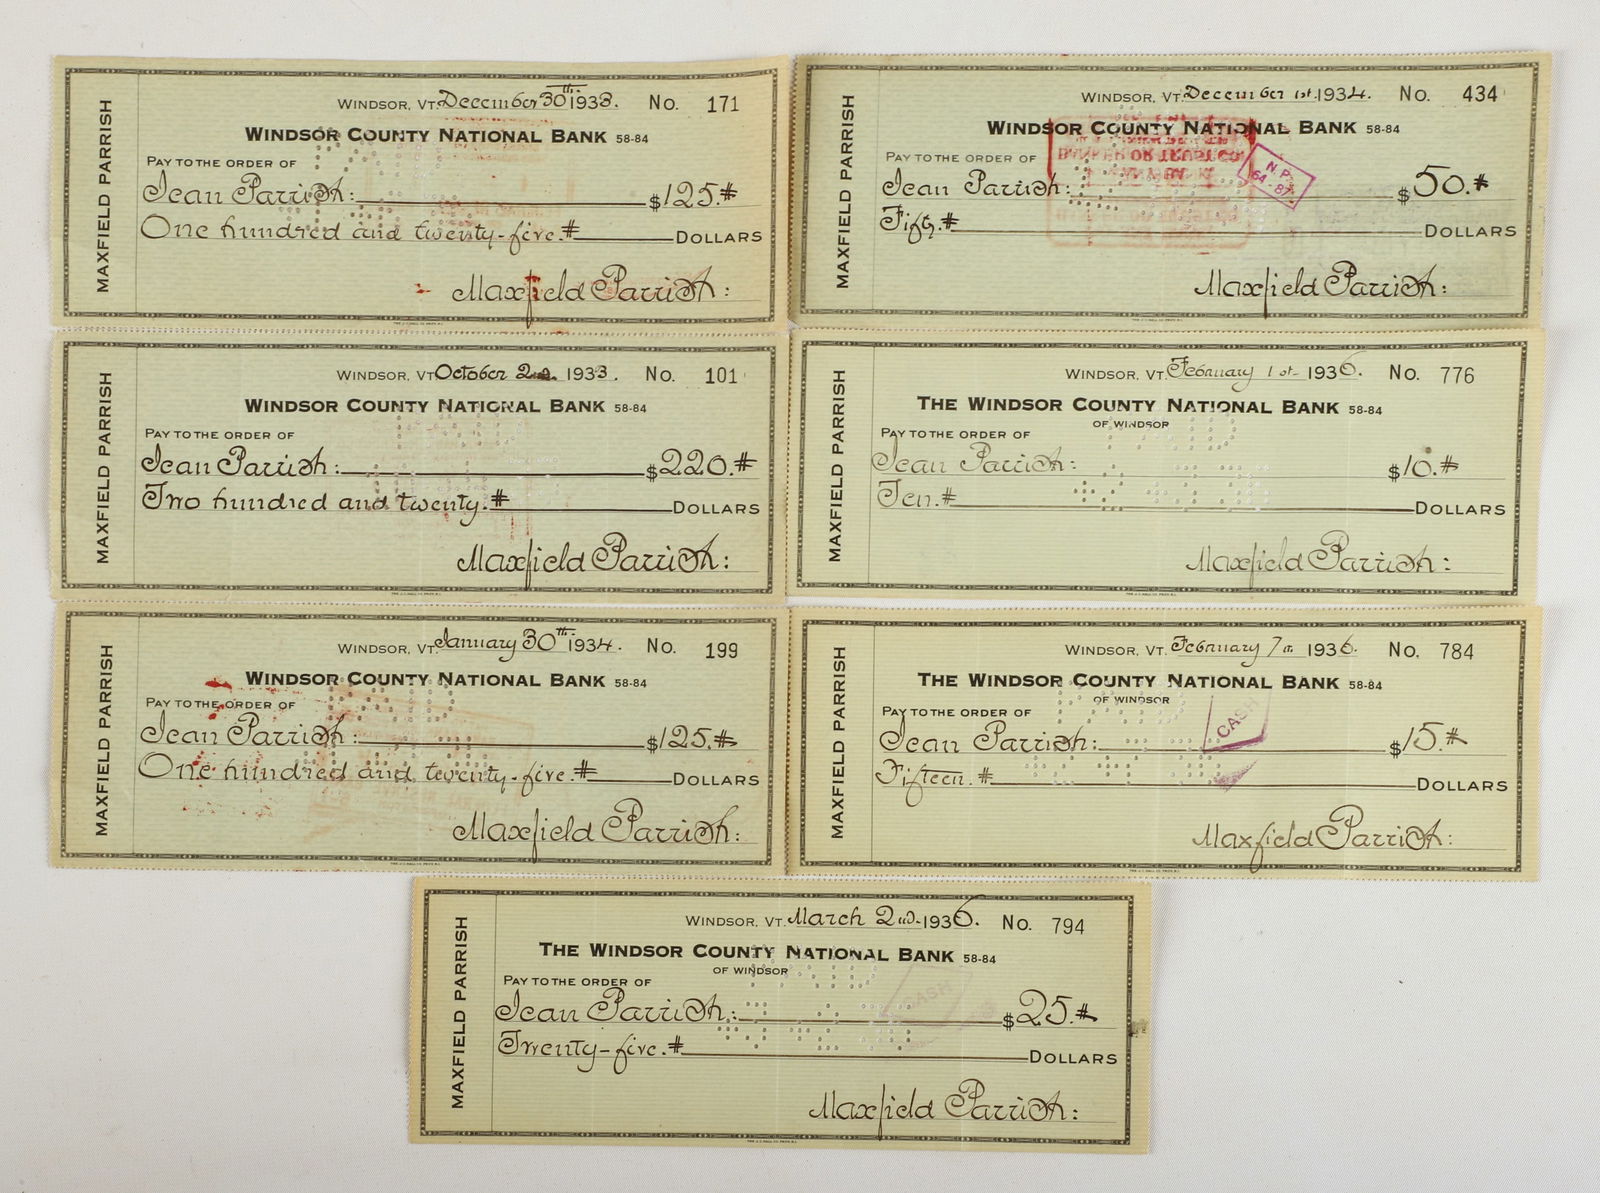 MAXFIELD PARRISH
WINDSOR, VT. December 30th 1933. No. 171
WINDSOR COUNTY NATIONAL BANK 58-84
PAY TO THE ORDER OF
Jean Parrish: $125.#
One hundred and twenty-five.# DOLLARS
Maxfield Parrish:
MAXFIELD PARRISH
WINDSOR, VT. December 1st. 1934. No. 434
WINDSOR COUNTY NATIONAL BANK 58-84
PAY TO THE ORDER OF
N.P.
64-87
Jean Parrish: $50.#
Fifty.# DOLLARS
Maxfield Parrish:
MAXFIELD PARRISH
WINDSOR, VT. October 1933. No. 101
WINDSOR COUNTY NATIONAL BANK 58-84
PAY TO THE ORDER OF
PAID
Jean Parrish: $220.#
Two hundred and twenty.# DOLLARS
Maxfield Parrish:
MAXFIELD PARRISH
WINDSOR, VT. February 1st- 1936. No. 776
THE WINDSOR COUNTY NATIONAL BANK 58-84
OF WINDSOR
PAY TO THE ORDER OF
PAID
Jean Parrish: $10.#
Ten.# DOLLARS
Maxfield Parrish:
MAXFIELD PARRISH
WINDSOR, VT. January 30th. 1934. No. 199
WINDSOR COUNTY NATIONAL BANK 58-84
PAY TO THE ORDER OF
PAID
Jean Parrish: $125.#
One hundred and twenty-five.# DOLLARS
Maxfield Parrish:
MAXFIELD PARRISH
WINDSOR, VT. February 7th. 1936. No. 784
THE WINDSOR COUNTY NATIONAL BANK 58-84
OF WINDSOR
PAY TO THE ORDER OF
PAID
CASH
Jean Parrish: $15.#
Fifteen.# DOLLARS
Maxfield Parrish:
MAXFIELD PARRISH
WINDSOR, VT. March 2nd- 1936. No. 794
THE WINDSOR COUNTY NATIONAL BANK 58-84
OF WINDSOR
PAY TO THE ORDER OF
PAID
CASH
Jean Parrish: $25.#
Twenty-five.# DOLLARS
Maxfield Parrish: